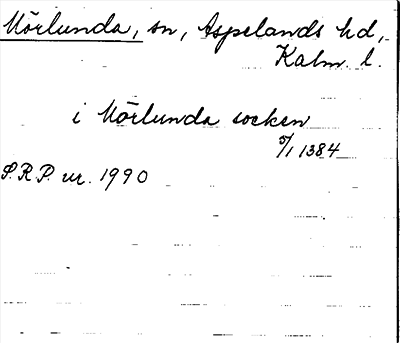 Mörlunda, sn, Aspelands hd,
Kalm. l.
i Mörlunda socken
5/1 1384
S.R.P. nr. 1990